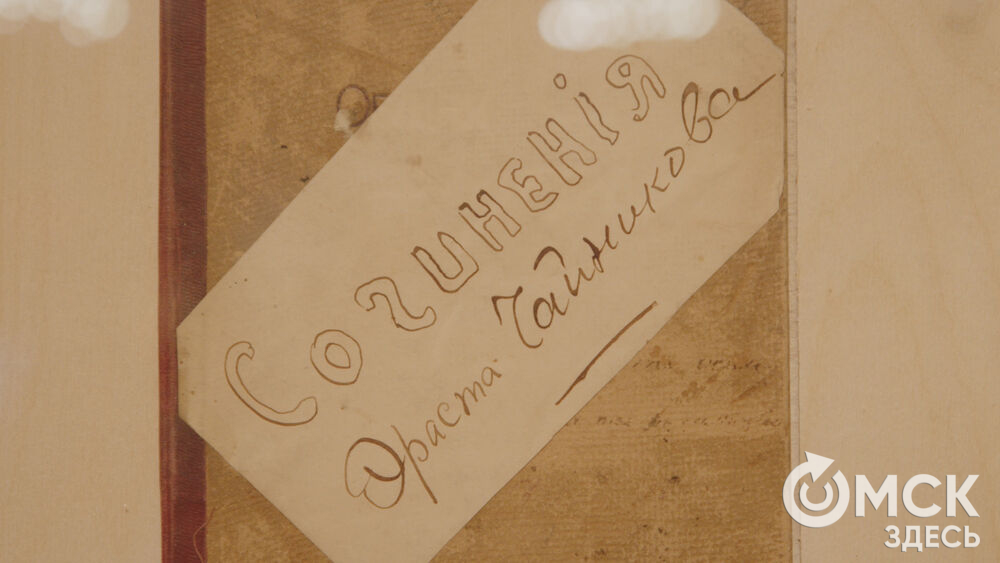 Сочиненія
Эраста Чайникова
ОМСК
ЗДЕСЬ